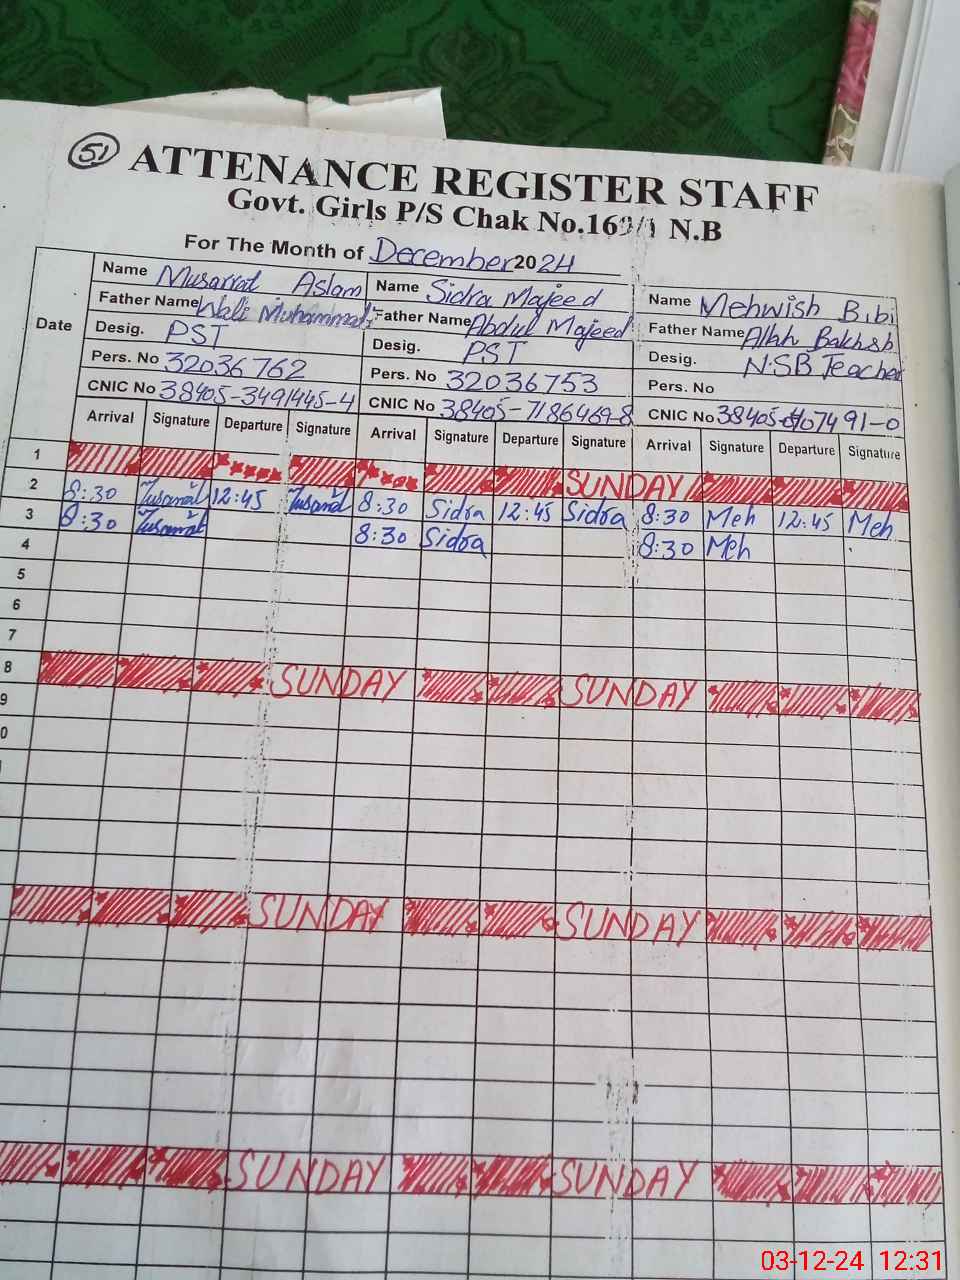 51
ATTENANCE REGISTER STAFF
Govt. Girls P/S Chak No.169/1 N.B
For The Month of December 2024
Date
Name Musarrat Aslam Name Sidra Majeed Name Mehwish Bibi
Father Name Wali Muhammad Father Name Abdul Majeed Father Name Allah Bakhsh
Desig. PST Desig. PST Desig. N.SB Teacher
Pers. No 32036762 Pers. No 32036753 Pers. No
CNIC No 38405-3491445-4 CNIC No 38405-7186469-8 CNIC No
Arrival Signature Departure Signature Arrival Signature Departure Signature Arrival Signature Departure Signature
1 SUNDAY
2 8:30 12:45 8:30 Sidra 12:45 Sidra 8:30 Meh 12:45 Meh
3 8:30 8:30 Sidra 8:30 Meh
4
5
6
7
8 SUNDAY SUNDAY
9
0
SUNDAY SUNDAY
SUNDAY SUNDAY
03-12-24 12:31